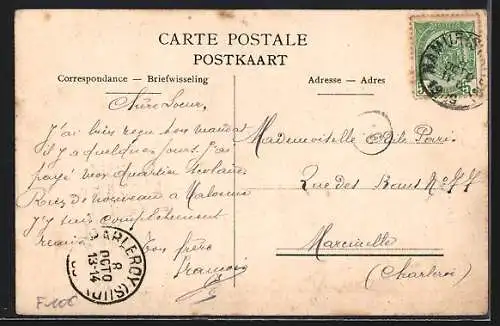 CARTE POSTALE
POSTKAART
Correspondance — Briefwisseling
Adresse — Adres
Chère Soeur,
J'ai bien reçu ton mandat
il y a quelques jours. J'ai
payé mon quartier scolaire.
de nouveau à Malonne
J'y suis complètement
remis. Ton frère
François
Mademoiselle Odile
Rue des
Marcinelle
(Charleroi)
CHARLEROY (SUD)
8
OCTO
13-14
F-10€